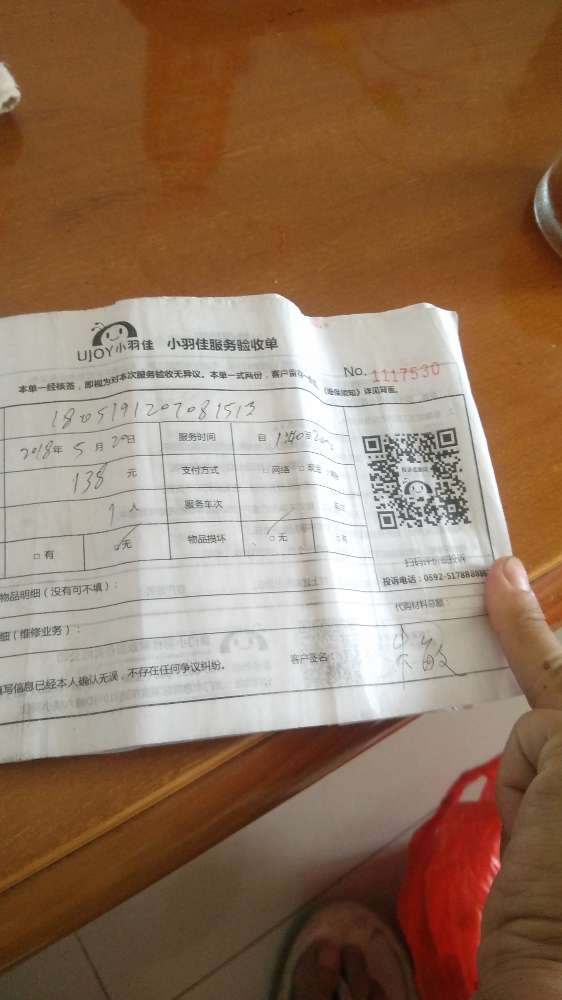 UJOY小羽佳 小羽佳服务验收单
No. 1117530
本单一经核签，即视为对本次服务验收无异议。本单一式两份，客户留存一 《维保须知》详见背面。
1805191207081513
2018年 5月 20日 服务时间 自
138 元 支付方式 □网络 □现金
1 人 服务车次
□有 □无 物品损坏 □无 □有
扫码评价 投诉
物品明细（没有可不填）： 投诉电话：0592-5178888
代购材料总额：
细（维修业务）：
填写信息已经本人确认无误，不存在任何争议纠纷。 客户签名：